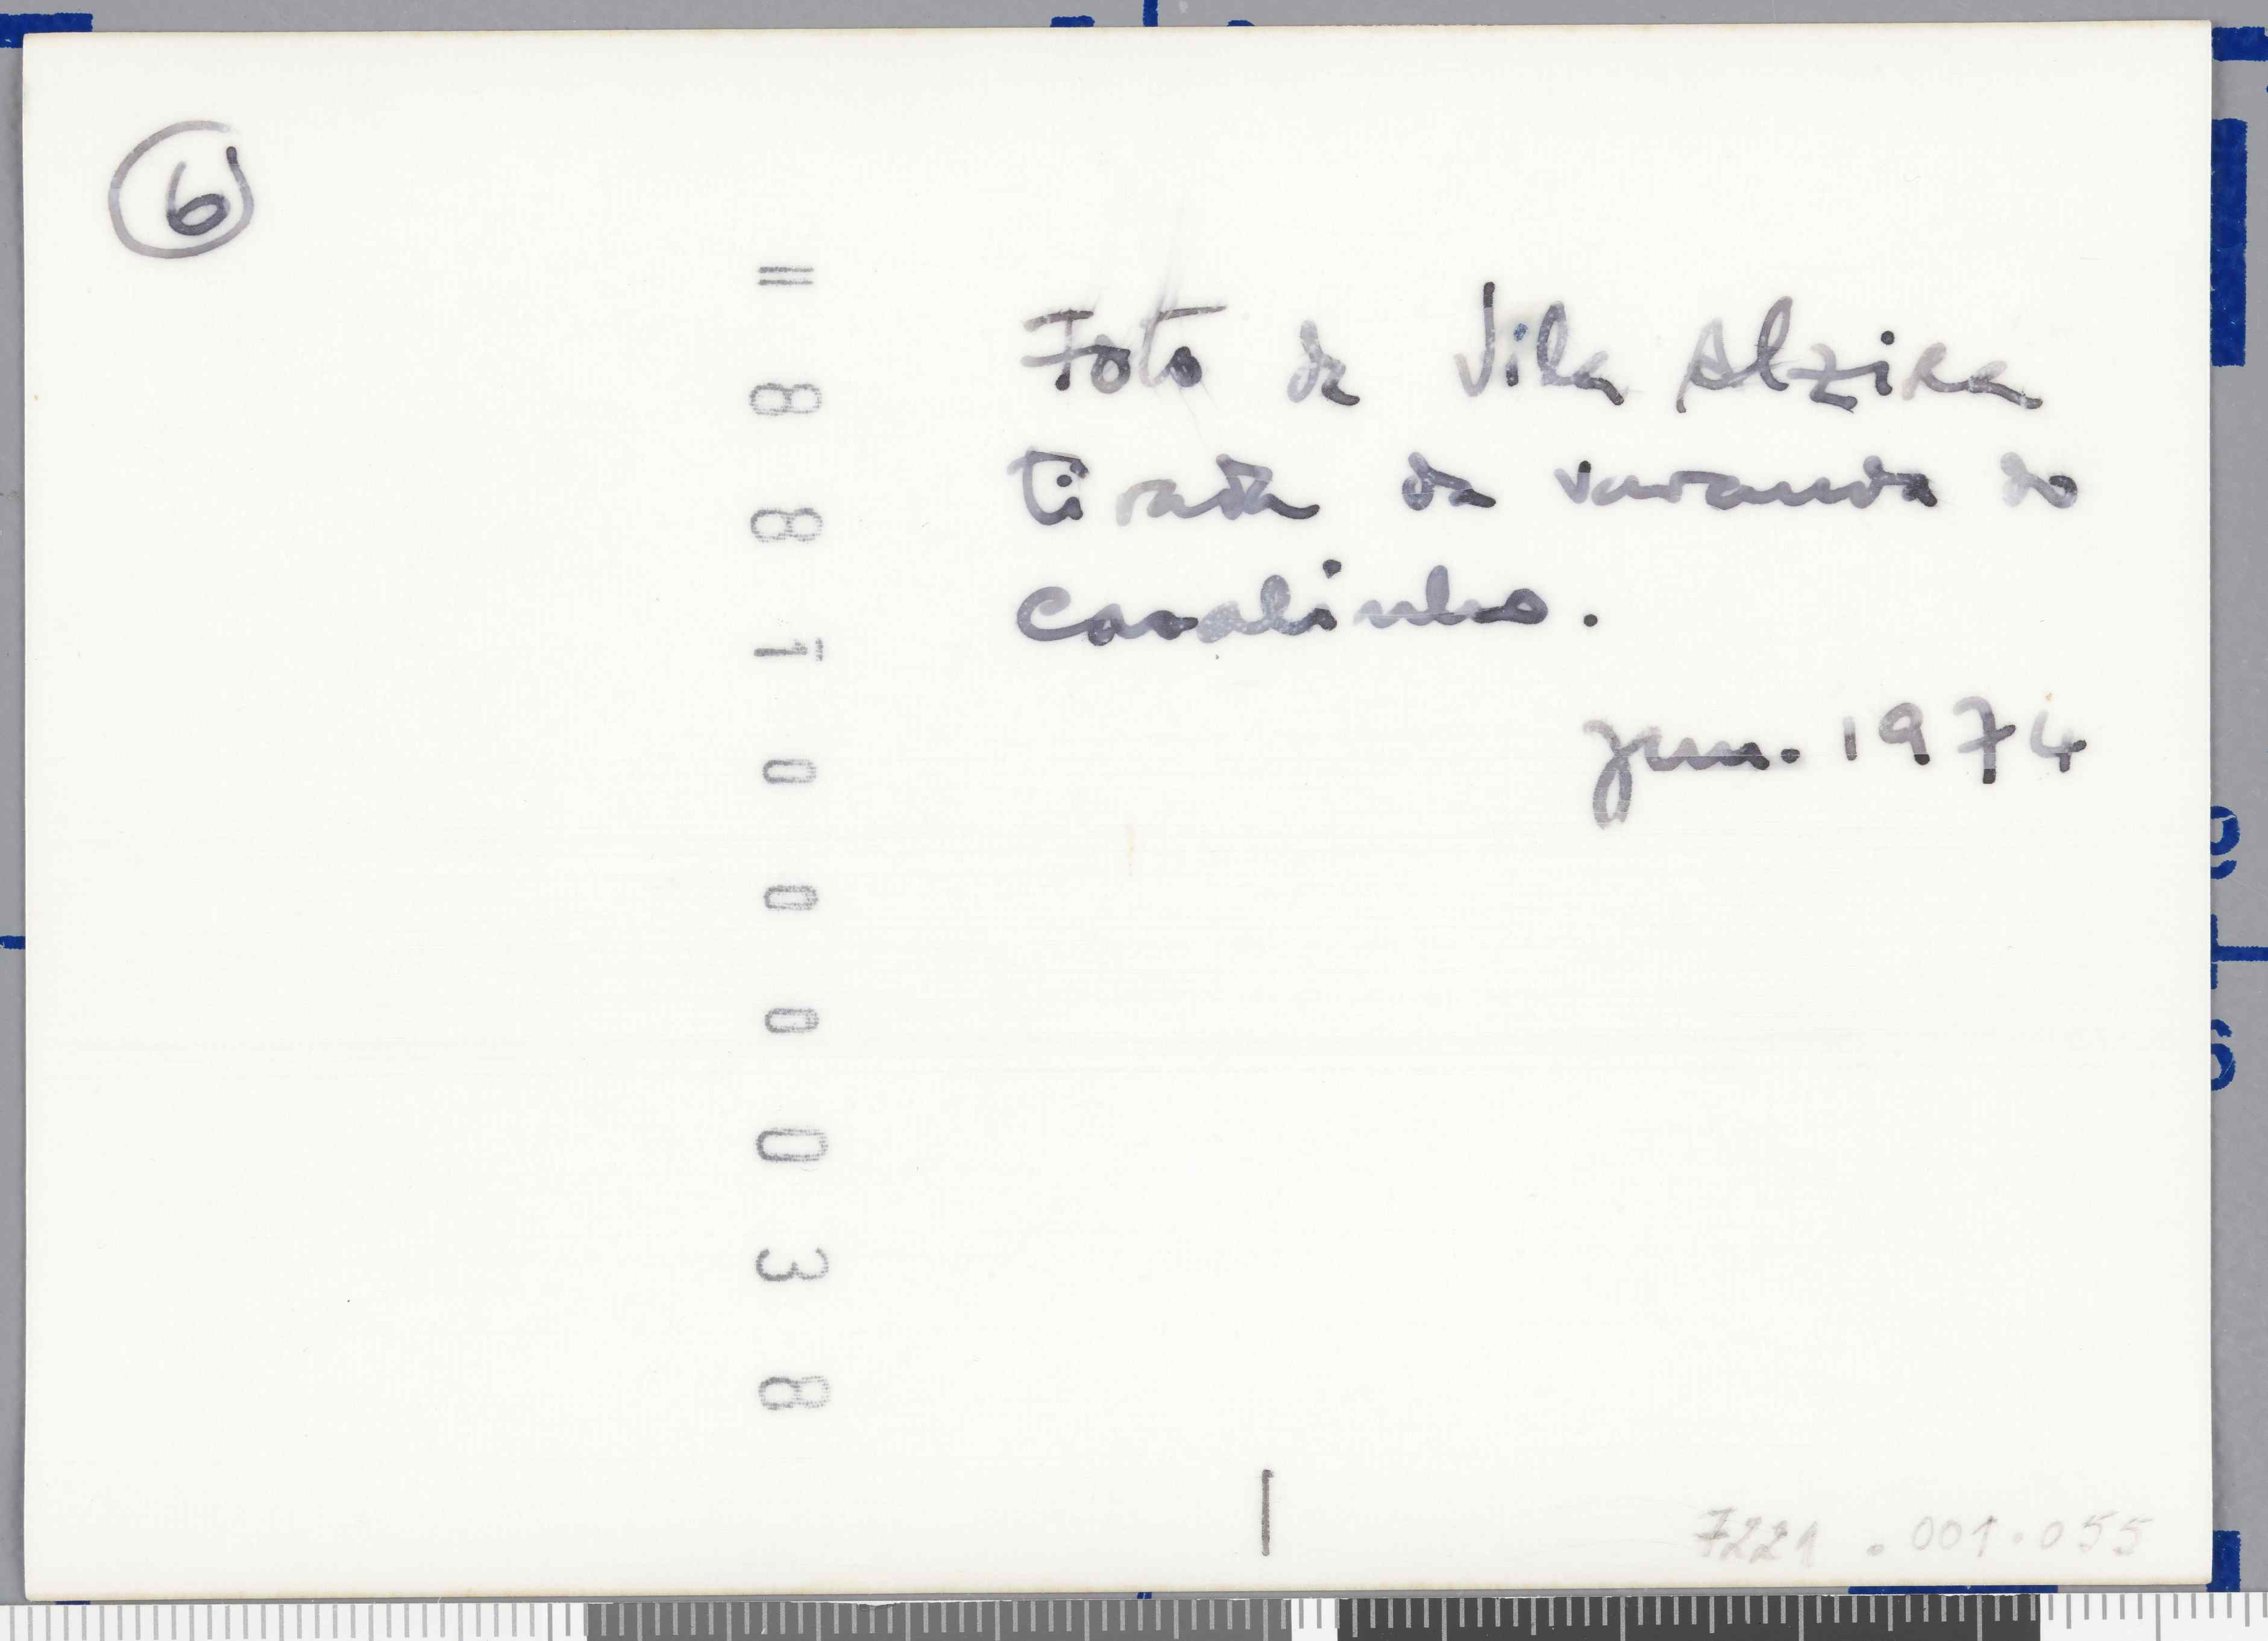 6
Foto da Vila Alzira
tirada da varanda do
Casalinho.
jun. 1974
= 8 8 1 0 0 0 0 3 8
7221.001.055